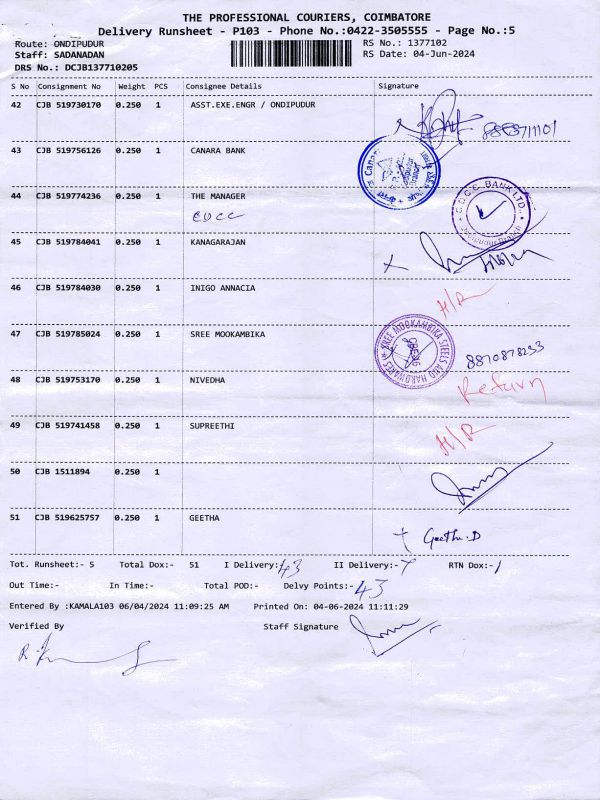 THE PROFESSIONAL COURIERS, COIMBATORE
Delivery Runsheet - P103 - Phone No.:0422-3505555 - Page No.:5
Route: ONDIPUDUR RS No.: 1377102
Staff: SADANADAN RS Date: 04-Jun-2024
DRS No.: DCJB137710205
S No Consignment No Weight PCS Consignee Details Signature
42 CJB 519730170 0.250 1 ASST.EXE.ENGR / ONDIPUDUR
43 CJB 519756126 0.250 1 CANARA BANK
44 CJB 519774236 0.250 1 THE MANAGER
CDCC
45 CJB 519784041 0.250 1 KANAGARAJAN
46 CJB 519784030 0.250 1 INIGO ANNACIA H/R
47 CJB 519785024 0.250 1 SREE MOOKAMBIKA
SREE MOOKAHBIKA STEELS AND HARDWARES
8870878233
48 CJB 519753170 0.250 1 NIVEDHA Return
49 CJB 519741458 0.250 1 SUPREETHI H/R
50 CJB 1511894 0.250 1
51 CJB 519625757 0.250 1 GEETHA Geetha.D
Tot. Runsheet:- 5 Total Dox:- 51 I Delivery:- 43 II Delivery:- 7 RTN Dox:- 1
Out Time:- In Time:- Total POD:- Delvy Points:- 43
Entered By :KAMALA103 06/04/2024 11:09:25 AM Printed On: 04-06-2024 11:11:29
Verified By Staff Signature